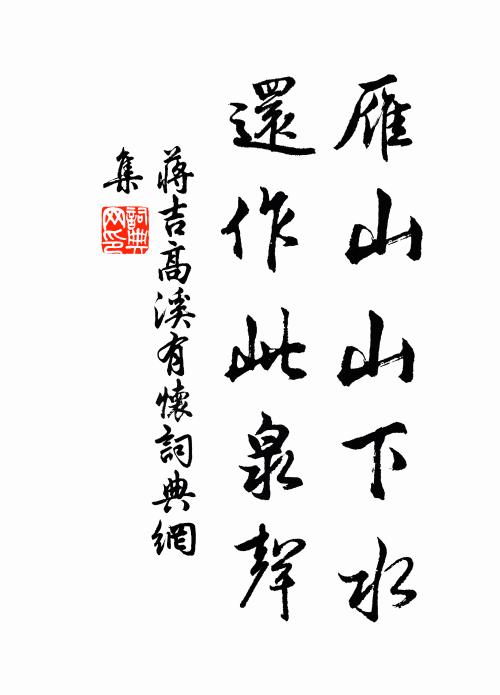 雁山山下水
還作此泉聲
蔣吉高溪有懷詞典網
集
詞典网印